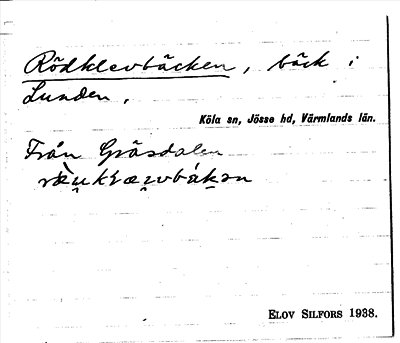 Rödklevbäcken, bäck i
Lunden.
Köla sn, Jösse hd, Värmlands län.
Från Gräsdalen
ELOV SILFORS 1938.